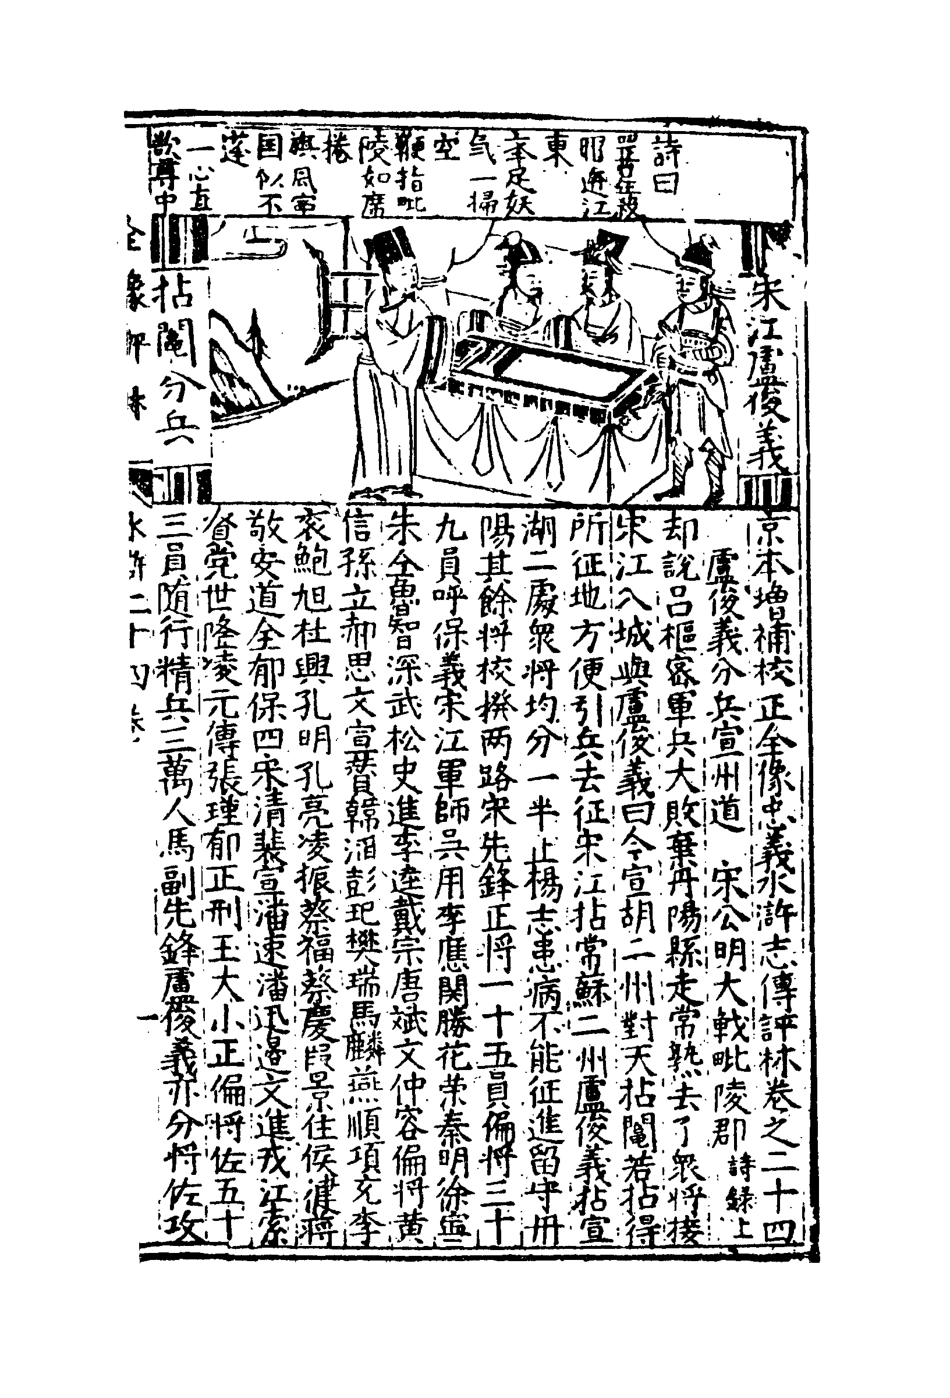 詩曰
罡星起
耶逝江
東
奉定妖
氛一掃
空
鞭指毗
陵如席
捲
輿同宣
国似不
蓬
一心直
欲尊中
宋江盧俊義
拈鬮分兵
京本增補校正全像忠義水滸志傳評林卷之二十四
盧俊義分兵宣州道 宋公明大戰毗陵郡 詩錄上
却說呂樞密軍兵大敗棄丹陽縣走常熟去了眾將接
宋江入城與盧俊義曰今宣胡二州對天拈鬮若拈得
所征地方便引兵去征宋江拈常蘇二州盧俊義拈宣
湖二處衆將均分一半止楊志患病不能征進留守丹
陽其餘將校撥两路宋先鋒正將一十五員偏將三十
九員呼保義宋江軍師吳用李應関勝花荣秦明徐寧
朱仝魯智深武松史進李逵戴宗唐斌文仲容偏將黄
信孫立郝思文宣賛韓滔彭玘樊瑞馬麟燕順項充李
袞鮑旭杜興孔明孔亮凌振蔡福蔡慶段景住侯健蔣
敬安道全郁保四宋清裴宣潘速潘迅邊文進戎江索
賁党世隆凌元傳張瑾郁正刑玉大小正偏將佐五十
三員随行精兵三萬人馬副先鋒盧俊義亦分將佐攻
全像評林
水滸二十四卷
一